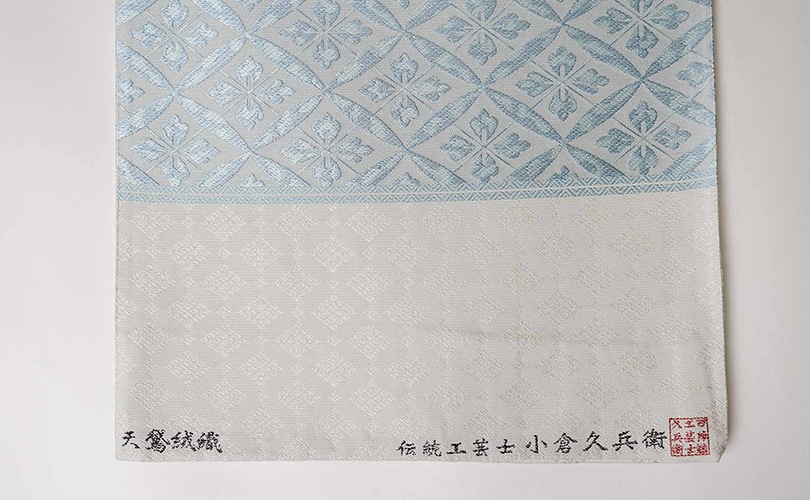 天鵞絨織
伝統工芸士 小倉久兵衛